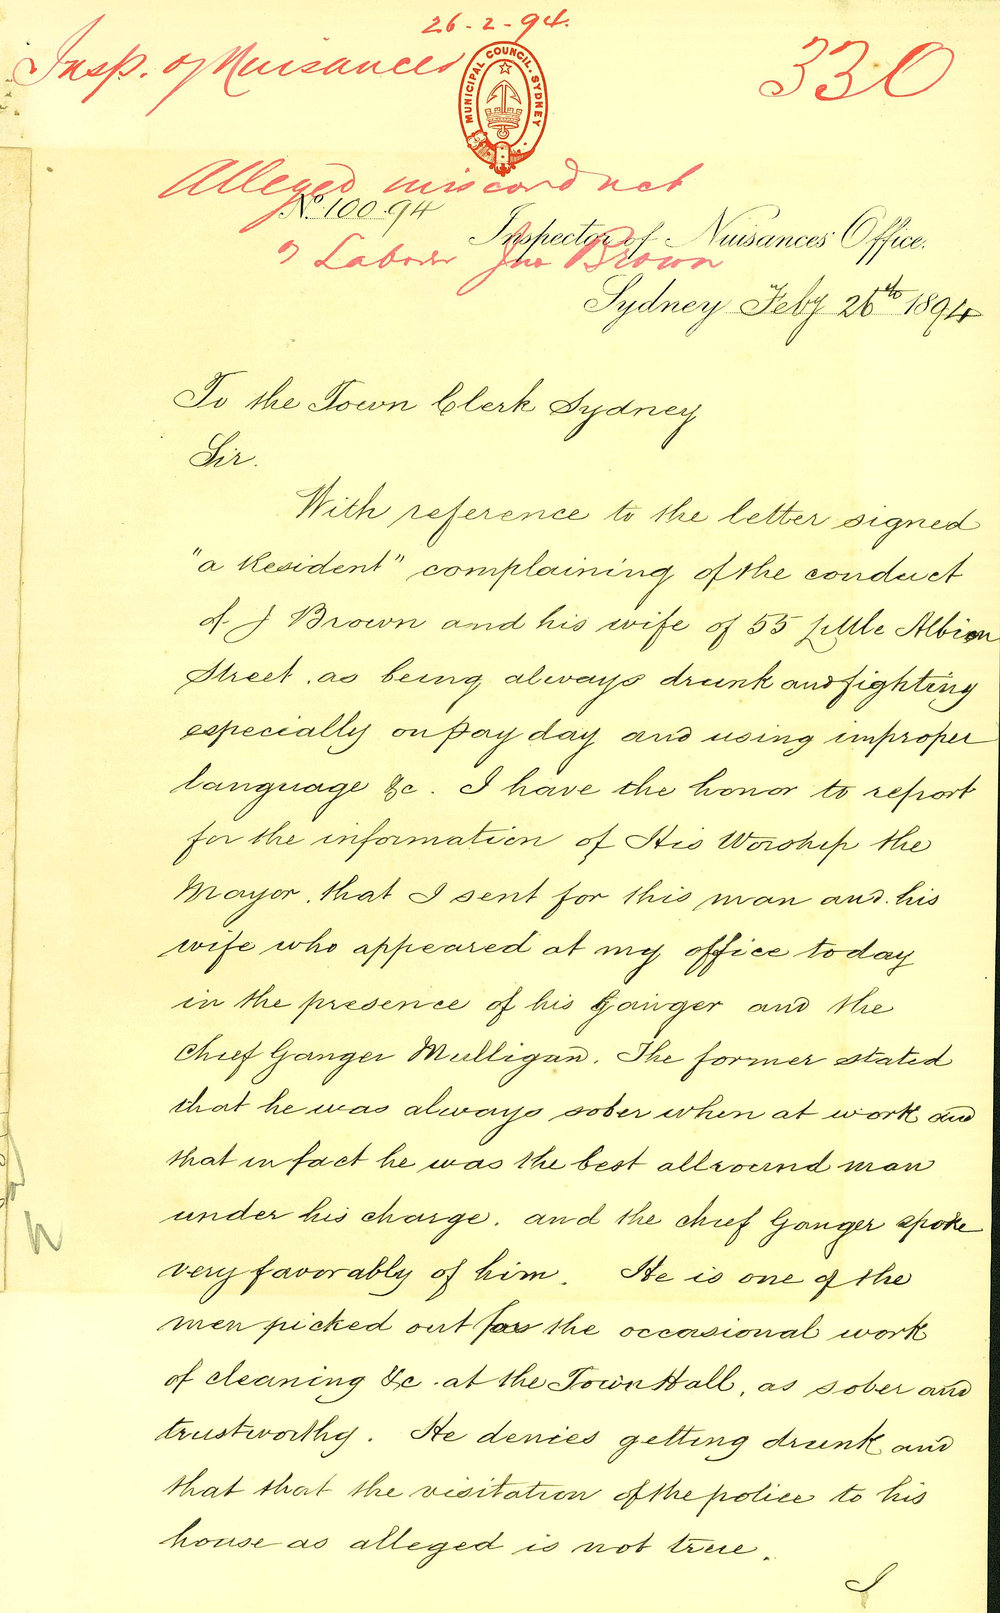 26-2-94.
Insp. of Nuisances
330
MUNICIPAL COUNCIL. SYDNEY
Alleged misconduct
No. 100.94
Inspector of Nuisances' Office.
of Laborer Jno Brown
Sydney Feby 26th 1894
To the Town Clerk Sydney
Sir.
With reference to the letter signed
"a Resident" complaining of the conduct
of J Brown and his wife of 55 Little Albion
Street. as being always drunk and fighting
especially on Pay day and using improper
language &c. I have the honor to report
for the information of His Worship the
Mayor. that I sent for this man and his
wife who appeared at my office today
in the presence of his Ganger and the
Chief Ganger Mulligan. The former stated
that he was always sober when at work and
that in fact he was the best allround man
under his charge. and the chief Ganger spoke
very favorably of him. He is one of the
men picked out for the occasional work
of cleaning &c. at the Town Hall, as sober and
trustworthy. He denies getting drunk and
that that the visitation of the police to his
house as alleged is not true.
I